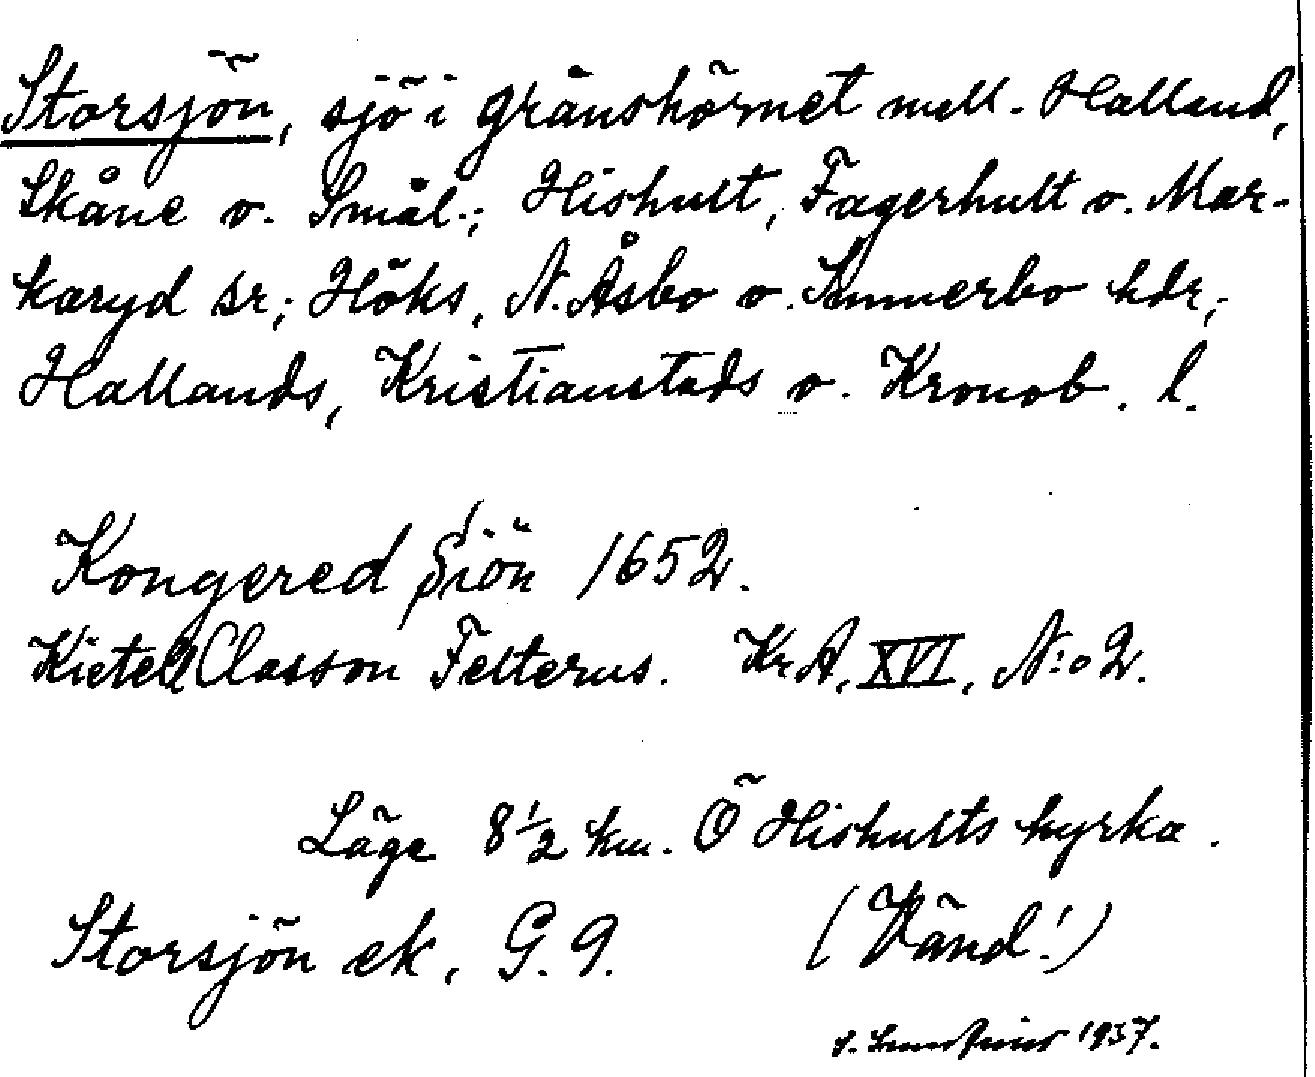 Storsjön, sjö i gränshörnet mell. Halland,
Skåne o. Smål.; Hishult, Fagerhult o. Mar-
karyd sr; Höks, N. Åsbo o. Sunnerbo hdr,
Hallands, Kristianstads o. Kronob. l.
Kongered Siön 1652.
Kietell Classon Felterus. KrA, XVI, N:o 2.
Läge 8 1/2 km. Ö Hishults kyrka.
Storsjön ek, G. 9. (Vänd!)
1937.